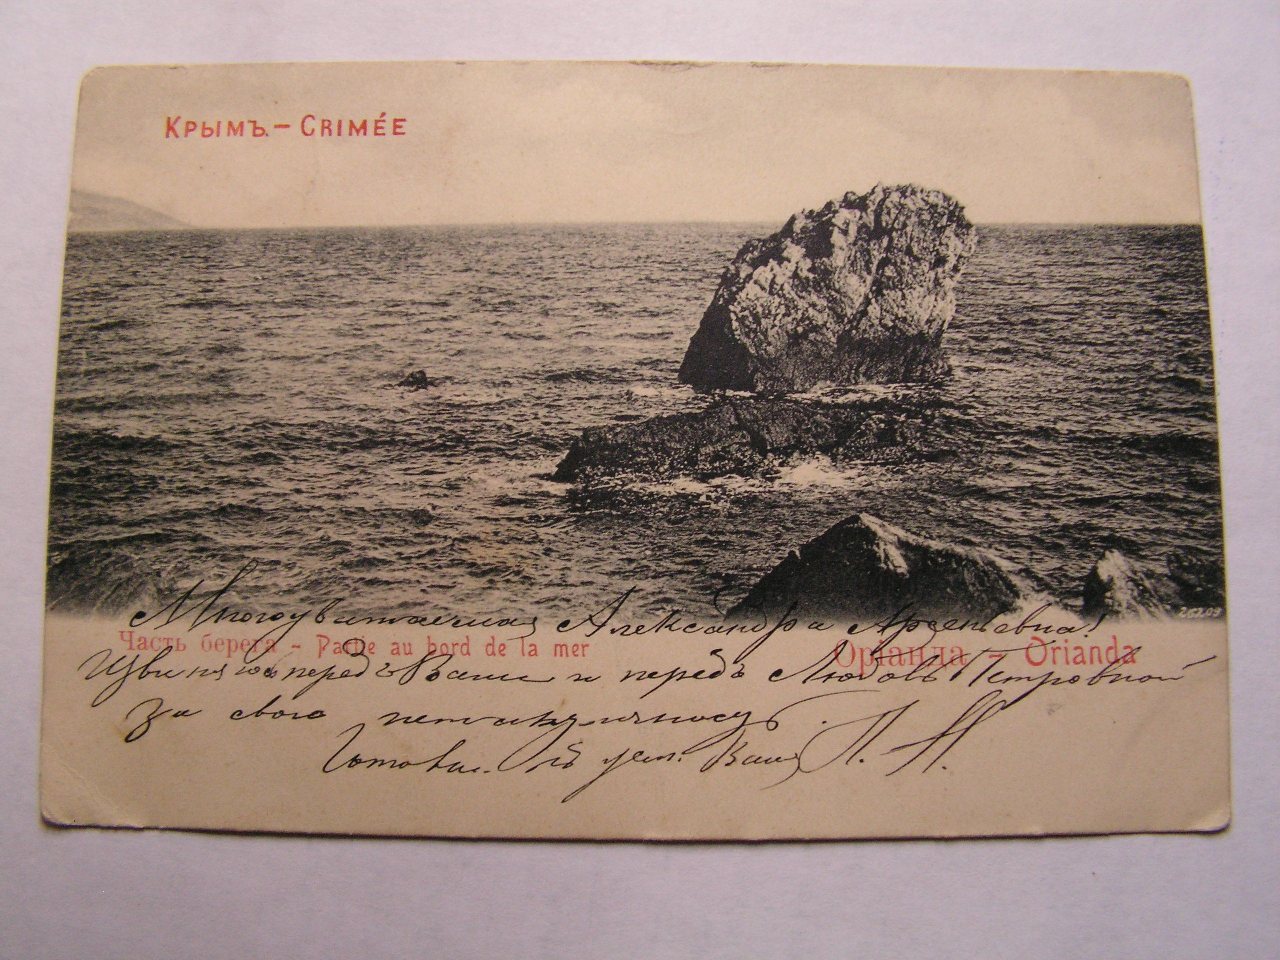 Крымъ. – Crimée
25209
Многоуважаемая Александра Арсеньевна!
Часть берега – Partie au bord de la mer
Оріанда – Orianda
Извиняюсь передъ Вами и передъ Любовь Петровной
за свою неаккуратность.
Готовый къ усл. Вашъ П. Н.